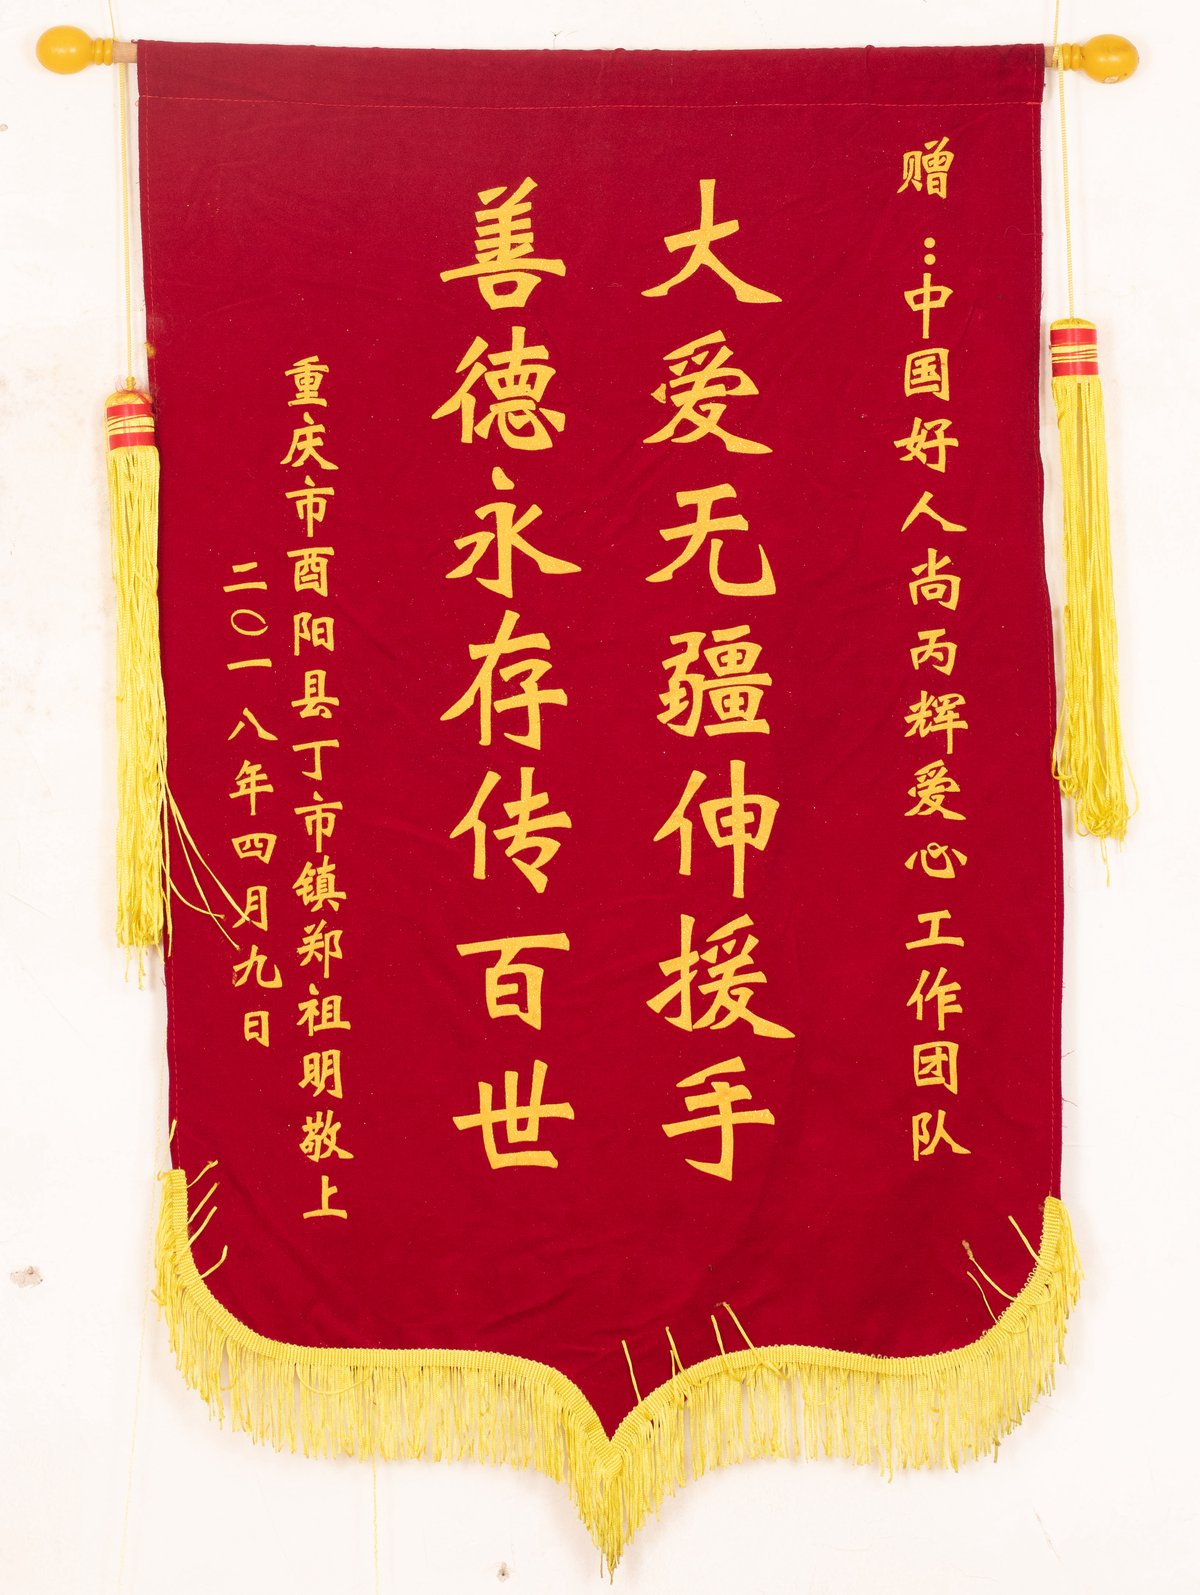 赠：中国好人尚丙辉爱心工作团队
大爱无疆伸援手
善德永存传百世
重庆市酉阳县丁市镇郑祖明敬上
二〇一八年四月九日